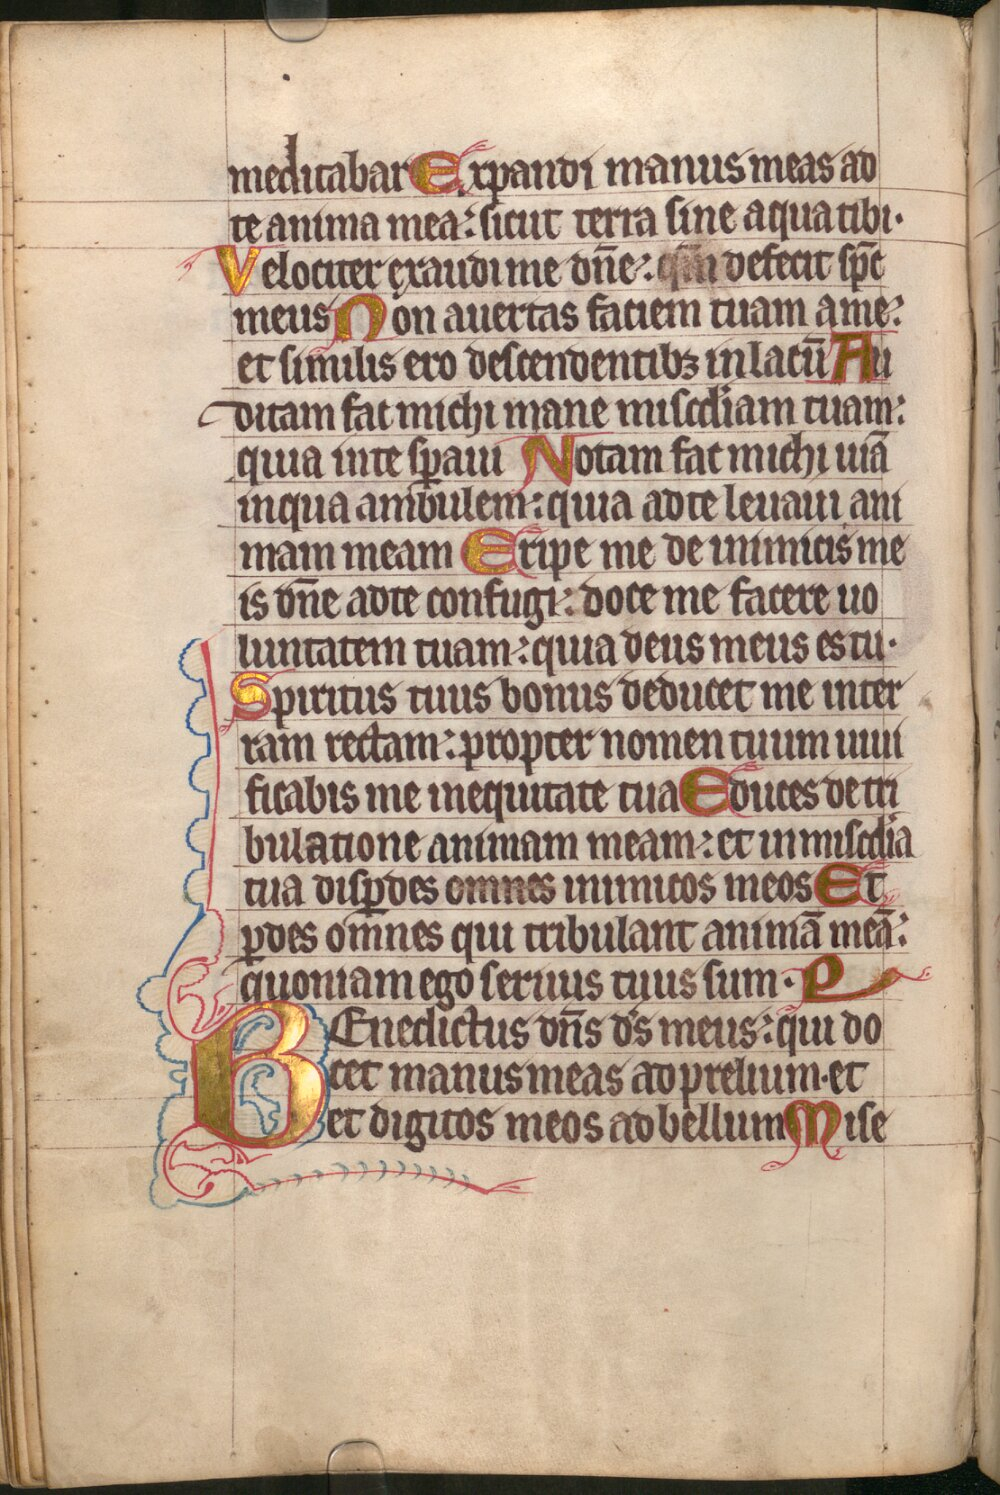 meditabar Expandi manus meas ad
te anima mea: sicut terra sine aqua tibi·
Velociter exaudi me dn̄e: defecit sp̄c
meus Non auertas faciem tuam a me:
et similis ero descendentibꝫ in lacū Au
ditam fac michi mane misc̄diam tuam:
quia in te sp̄aui Notam fac michi uiā
in qua ambulem: quia ad te leuaui ani
mam meam Eripe me de inimicis me
is dn̄e ad te confugi: doce me facere uo
luntatem tuam: quia deus meus es tu·
Spiritus tuus bonus deducet me in ter
ram rectam: propter nomen tuum uiui
ficabis me in equitate tua Educes de tri
bulatione animam meam: et in misc̄dia
tua disꝑdes omnes inimicos meos Et
ꝑdes omnes qui tribulant animā meā:
quoniam ego seruus tuus sum· P
BEnedictus dn̄s ds̄ meus: qui do
cet manus meas ad prelium· et
et digitos meos ad bellum Mise